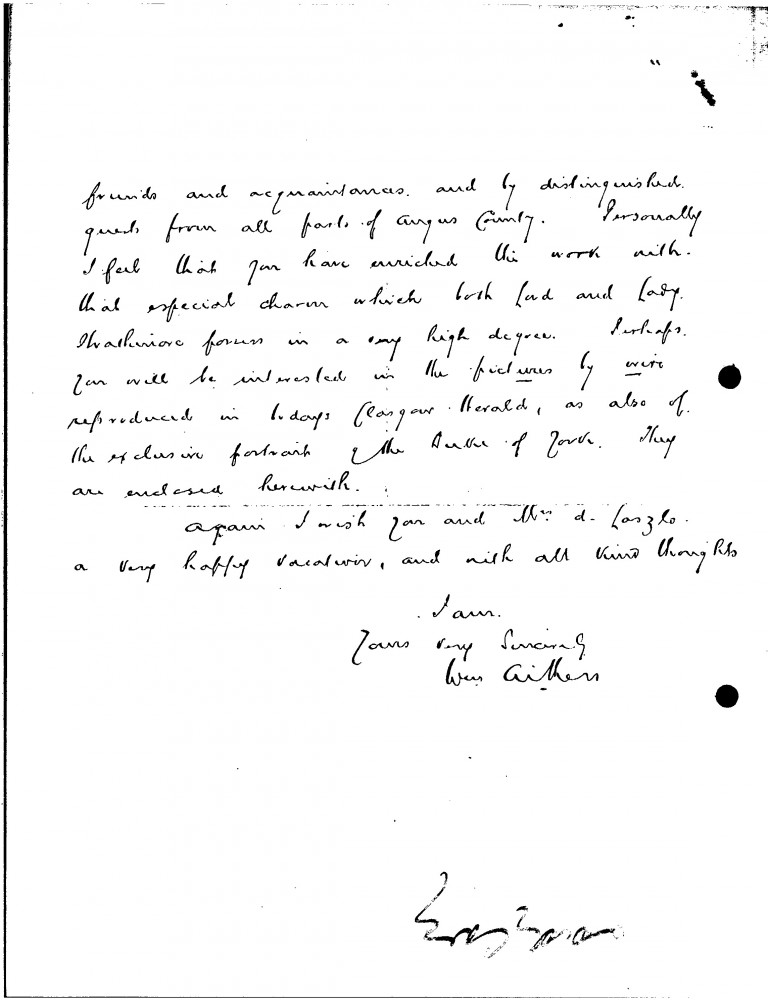 friends and acquaintances. and by distinguished.
guests from all parts of Angus County. Personally
I feel that you have enriched the work with.
that especial charm which both Lord and Lady.
Strathmore possess in a very high degree. Perhaps.
you will be interested in the pictures by wire
reproduced in todays Glasgow Herald, as also of.
the exclusive portrait of the Duke of York. They
are enclosed herewith.
Again I wish you and Mrs d. Laszlo.
a very happy vacation, and with all kind thoughts
I am.
Yours very Sincerely
Wm Aitken